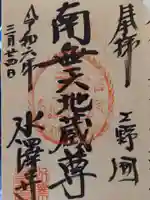 奉拝
上野国
南無六地蔵尊
水澤寺
令和六年
三月廿四日